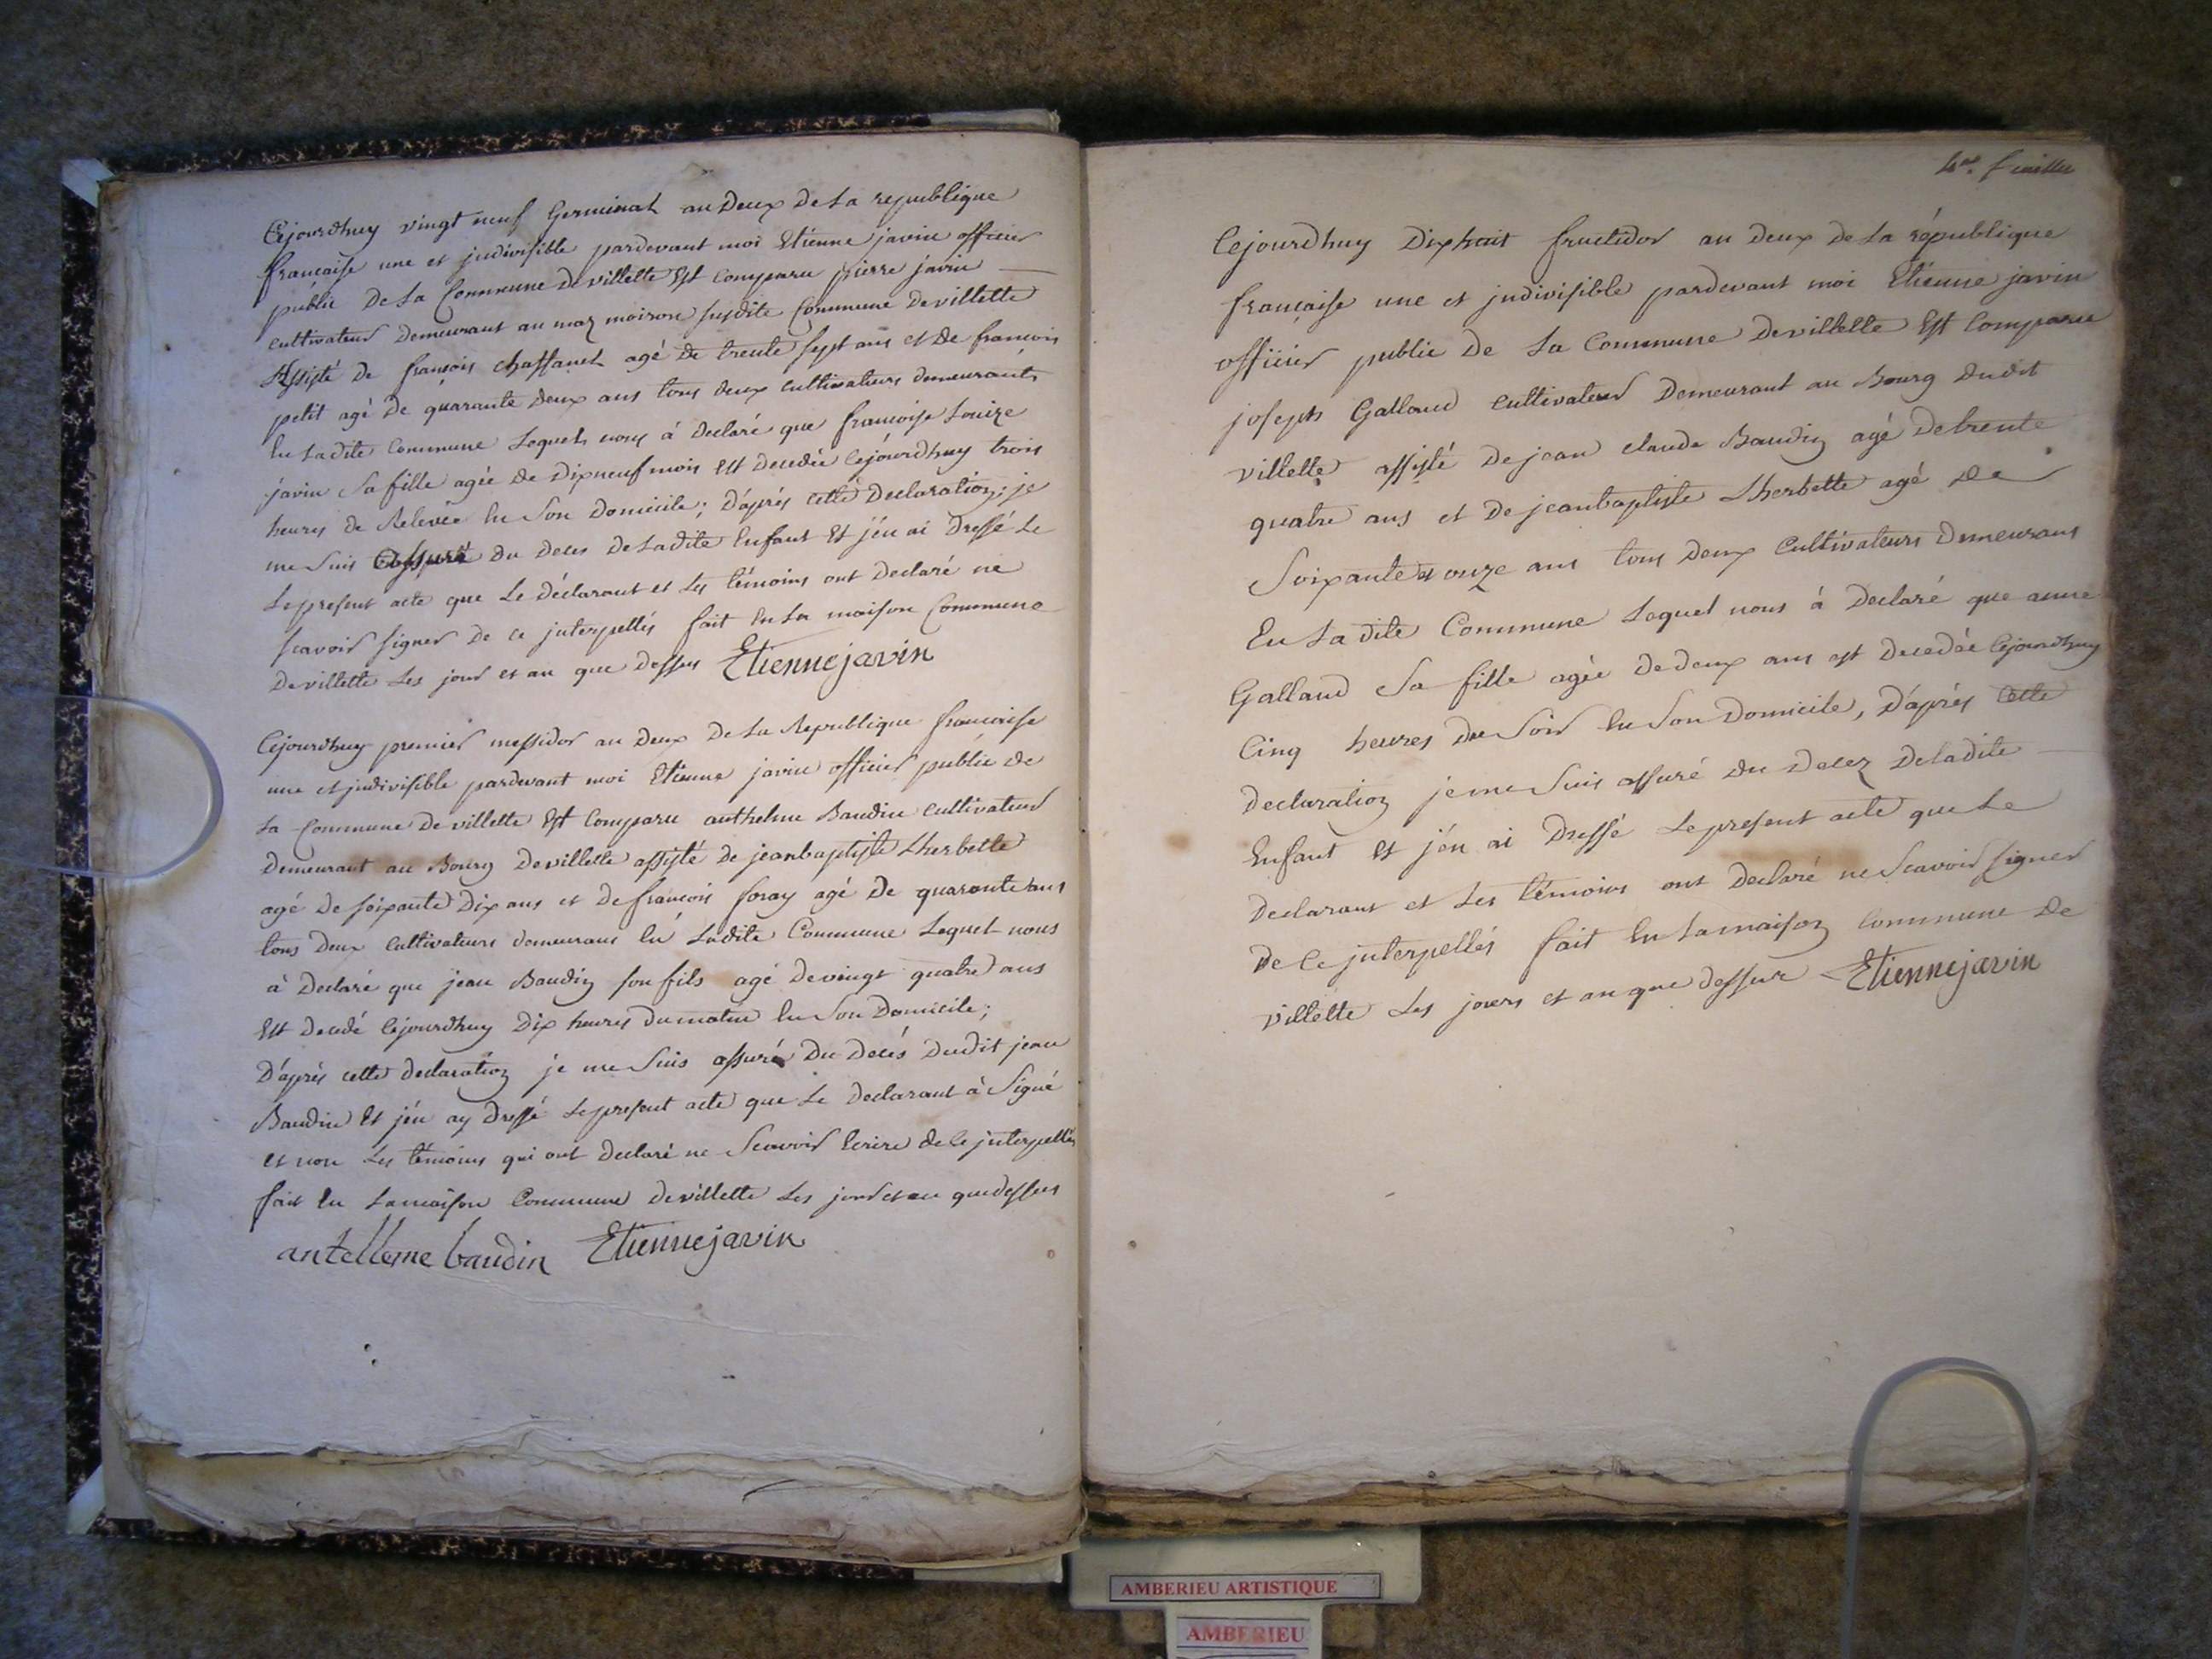 Cejourdhuy vingt neuf Germinal an Deux De La republique
francaise une et jndivisible pardevant moi Etienne javin officier
public De La Commune De villette Est Comparu pierre javin
cultivateur Demeurant au maz moiron susdite Commune De villette
Assisté De francois chaffanel agé De trente sept ans et De francois
petit agé De quarante Deux ans tous Deux cultivateurs Demeurants
En Ladite Commune Lequel nous á Declaré que francoise Louize
javin Sa fille agée De Dixneuf mois Est Decedée Cejourdhuy trois
heures De Relevée En Son Domicile; D'aprés cette Declaration; je
me Suis assuré Du Deces De Ladite Enfant Et j'én ai Dressé Le
Le present acte que Le Déclarant et Les témoins ont Declaré ne
scavoir signer De ce jnterpellés fait En La maison Commune
De villette Les jour et an que Dessus Etienne javin
Cejourdhuy premier messidor an Deux De La Republique francaise
une et jndivisible pardevant moi Etienne javin officier public De
La Commune De villette Est Comparu anthelme Baudin Cultivateur
Demeurant au Bourg De villette assisté De jeanbaptiste Lherbette
agé De soixante Dix ans et De francois foray agé De quarante ans
tous Deux Cultivateurs demeurans En Ladite Commune Lequel nous
à Declaré que jean Baudin son fils agé De vingt quatre ans
Est Decedé Cejourdhuy Dix heures Du matin En Son Domicile;
D'aprés cette declaration je me Suis assuré Du Decés Dudit jean
Baudin Et j'én ay Dressé Le present acte que Le Declarant à Signé
et non Les témoins qui ont declaré ne Scavoir Ecrire de Ce jnterpellés
fait En La maison Commune De villette Les jour et an que dessus
antelleme baudin Etienne javin
4me. feuillet
Cejourdhuy Dixhuit fructidor an Deux De La république
française une et jndivisible pardevant moi Etienne javin
officier public De La Commune De villette Est Comparu
joseph Galland Cultivateur Demeurant au Bourg Dudit
villette assisté De jean claude Baudin agé De trente
quatre ans et De jeanbaptiste Lherbette agé De
Soixante et onze ans tous Deux Cultivateurs Demeurans
En Ladite Commune Lequel nous à Declaré que anne
Galland Sa fille agée De deux ans est Decedée Cejourdhuy
Cinq heures Du Soir En Son Domicile, D'aprés Cette
Declaration je me Suis assuré Du Decez De Ladite
Enfant Et j'én ai Dressé Le present acte que Le
Declarant et Les témoins ont Declaré ne Scavoir signer
De Ce jnterpellés fait En La maison Commune De
villette Les jours et an que dessus Etienne javin
AMBERIEU ARTISTIQUE
AMBERIEU